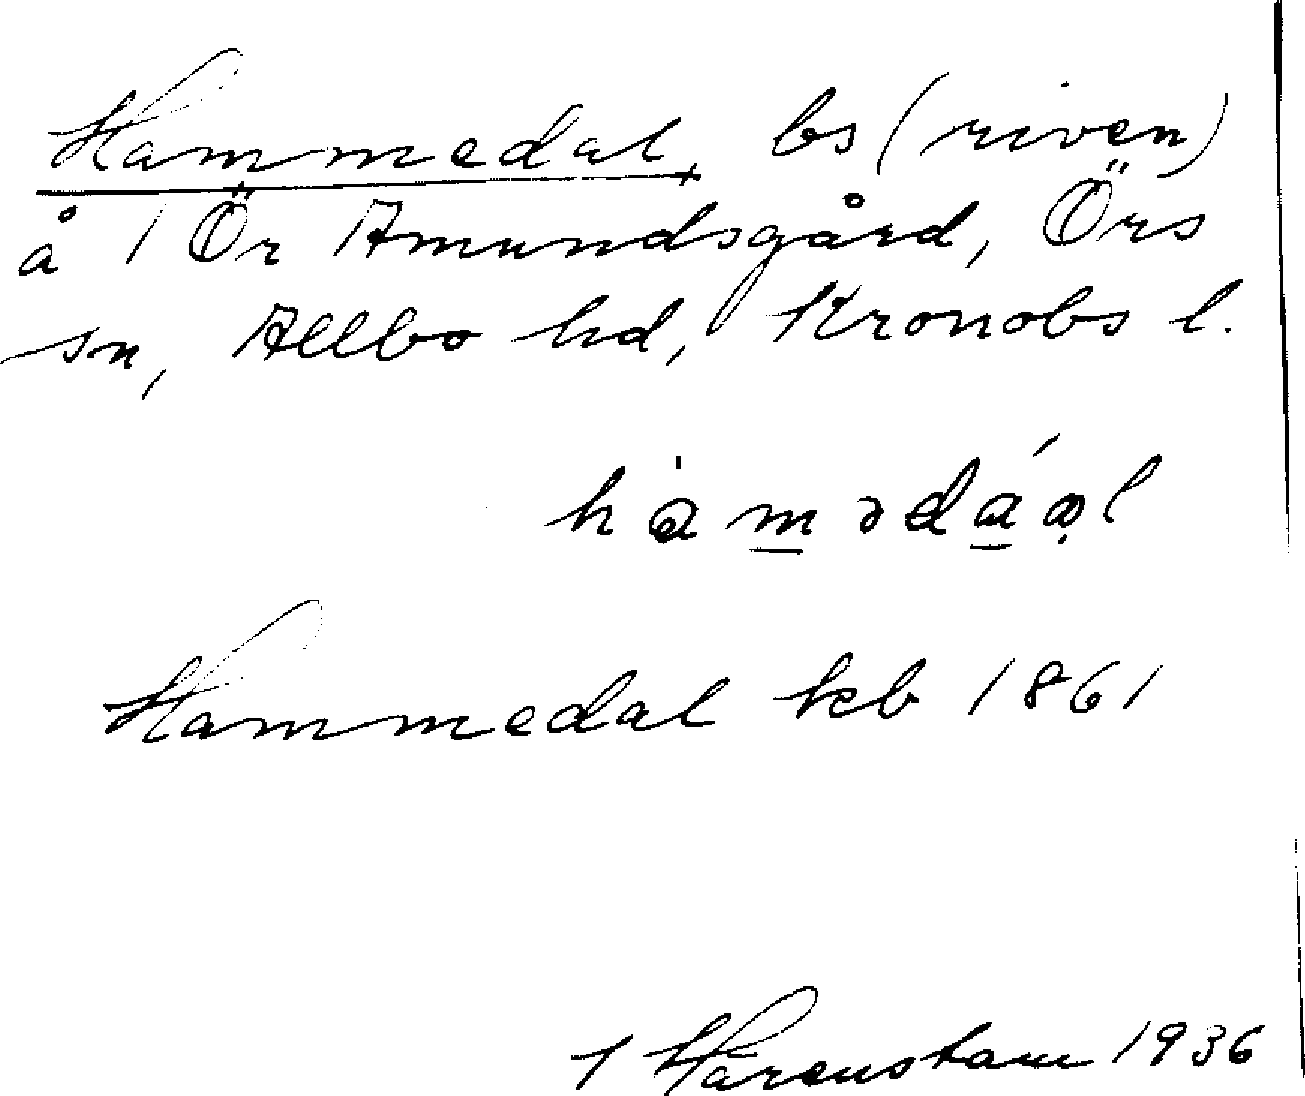 Hammedal, bs (riven)
å 1 Ör Amundsgård, Örs
sn, Allbo hd, Kronobs l.
Hammedal kb 1861
Härenstam 1936